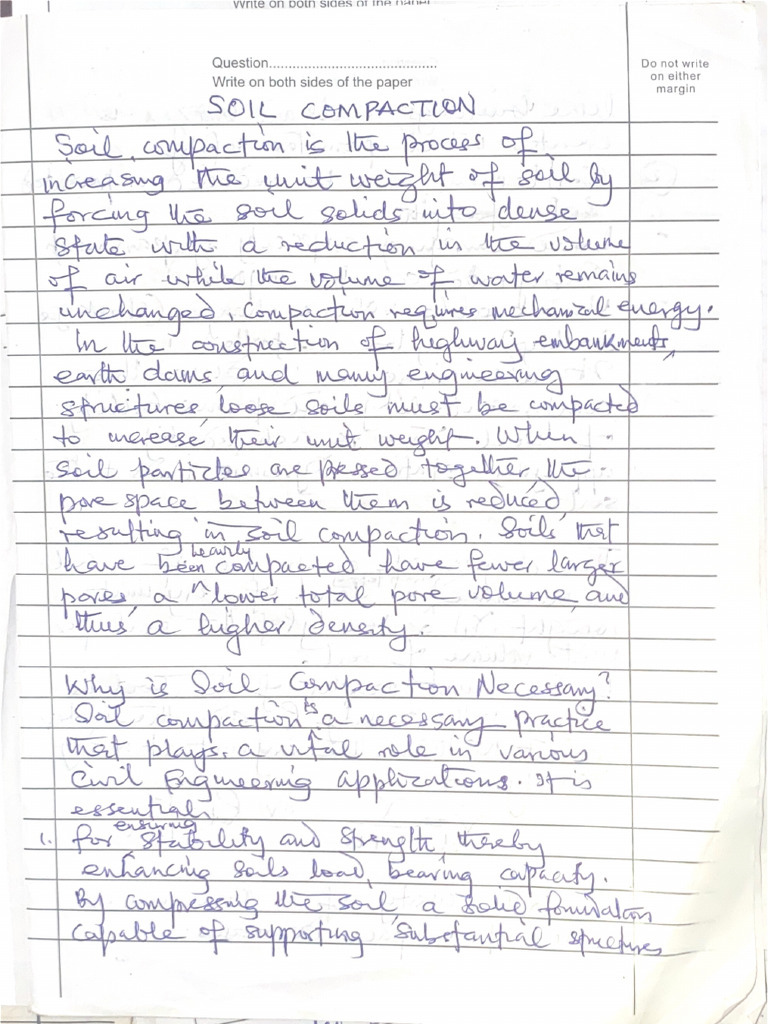 Write on both sides of the paper
Question
Write on both sides of the paper
Do not write
on either
margin
SOIL COMPACTION
Soil compaction is the process of
increasing the unit weight of soil by
forcing the soil solids into dense
state with a reduction in the volume
of air while the volume of water remains
unchanged. Compaction requires mechanical energy.
In the construction of highway embankments,
earth dams, and many engineering
structures, loose soils must be compacted
to increase their unit weight. When
soil particles are pressed together the
pore space between them is reduced,
resulting in soil compaction. Soils that
have been heavily compacted have fewer larger
pores, a lower total pore volume, and
thus, a higher density.
Why is Soil Compaction Necessary?
Soil compaction is a necessary practice
that plays a vital role in various
Civil Engineering applications. It is
essential
1. for ensuring stability and strength, thereby
enhancing soils load bearing capacity.
By compressing the soil, a solid foundation
capable of supporting substantial structures